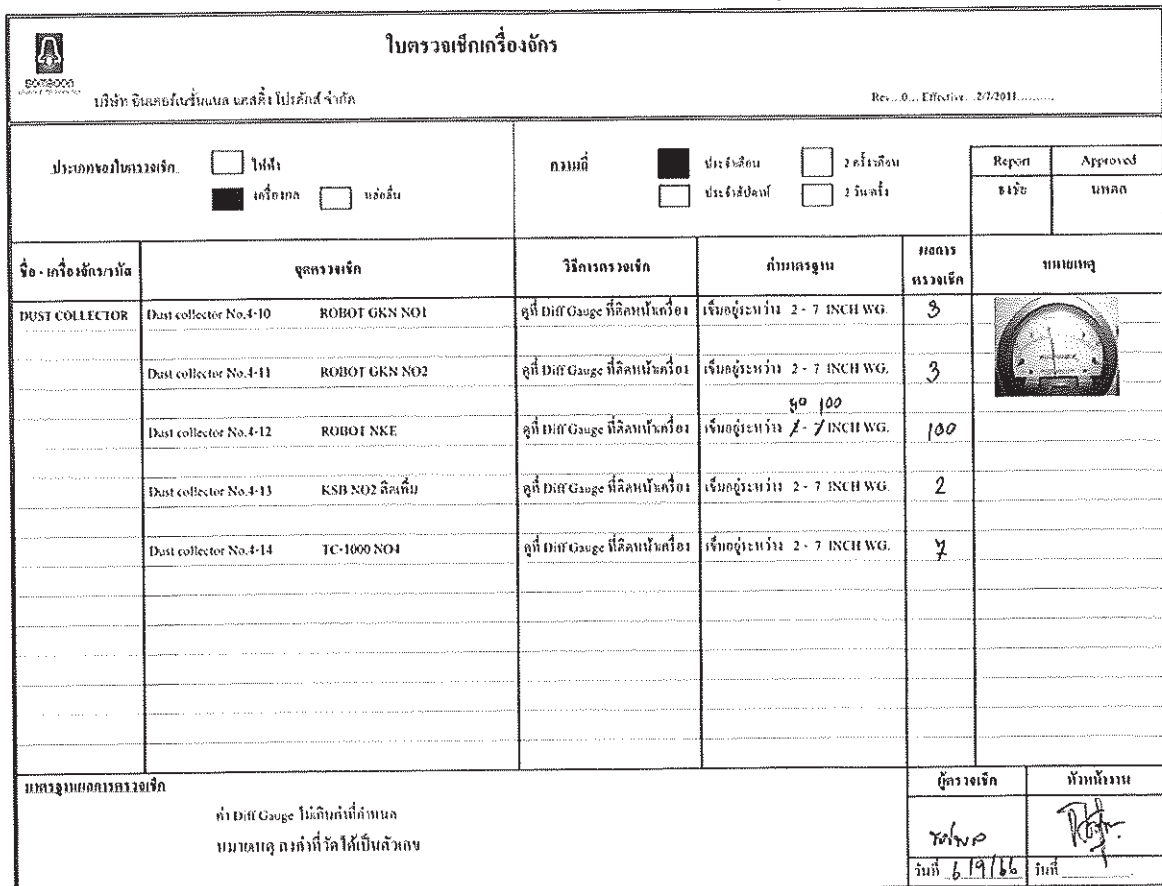 ใบตรวจเช็กเครื่องจักร
บริษัท อินเตอร์เนชั่นแนล แคสติ้ง โปรดักส์ จำกัด
Rev...0... Effective...2/7/2011.........
ประเภทของใบตรวจเช็ก ไฟฟ้า
เครื่องกล หล่อลื่น
ความถี่ ประจำเดือน 2 ครั้ง/เดือน
ประจำสัปดาห์ 2 วัน/ครั้ง
Report Approved
ธงชัย นพดล
ชื่อ - เครื่องจักร/รหัส จุดตรวจเช็ก วิธีการตรวจเช็ก ค่ามาตรฐาน ผลการตรวจเช็ก หมายเหตุ
DUST COLLECTOR Dust collector No.4-10 ROBOT GKN NO1 ดูที่ Diff Gauge ที่ติดหน้าเครื่อง เข็มอยู่ระหว่าง 2 - 7 INCH WG. 3
Dust collector No.4-11 ROBOT GKN NO2 ดูที่ Diff Gauge ที่ติดหน้าเครื่อง เข็มอยู่ระหว่าง 2 - 7 INCH WG. 3
100
Dust collector No.4-12 ROBOT NKE ดูที่ Diff Gauge ที่ติดหน้าเครื่อง เข็มอยู่ระหว่าง 2 - 7 INCH WG. 100
Dust collector No.4-13 KSB NO2 ดูที่ Diff Gauge ที่ติดหน้าเครื่อง เข็มอยู่ระหว่าง 2 - 7 INCH WG. 2
Dust collector No.4-14 TC-1000 NO4 ดูที่ Diff Gauge ที่ติดหน้าเครื่อง เข็มอยู่ระหว่าง 2 - 7 INCH WG. 7
มาตรฐานผลการตรวจเช็ก
ค่า Diff Gauge ไม่เกินค่าที่กำหนด
หมายเหตุ ลงค่าที่วัดได้เป็นตัวเลข
ผู้ตรวจเช็ก หัวหน้างาน
วันที่ 6/9/66 วันที่